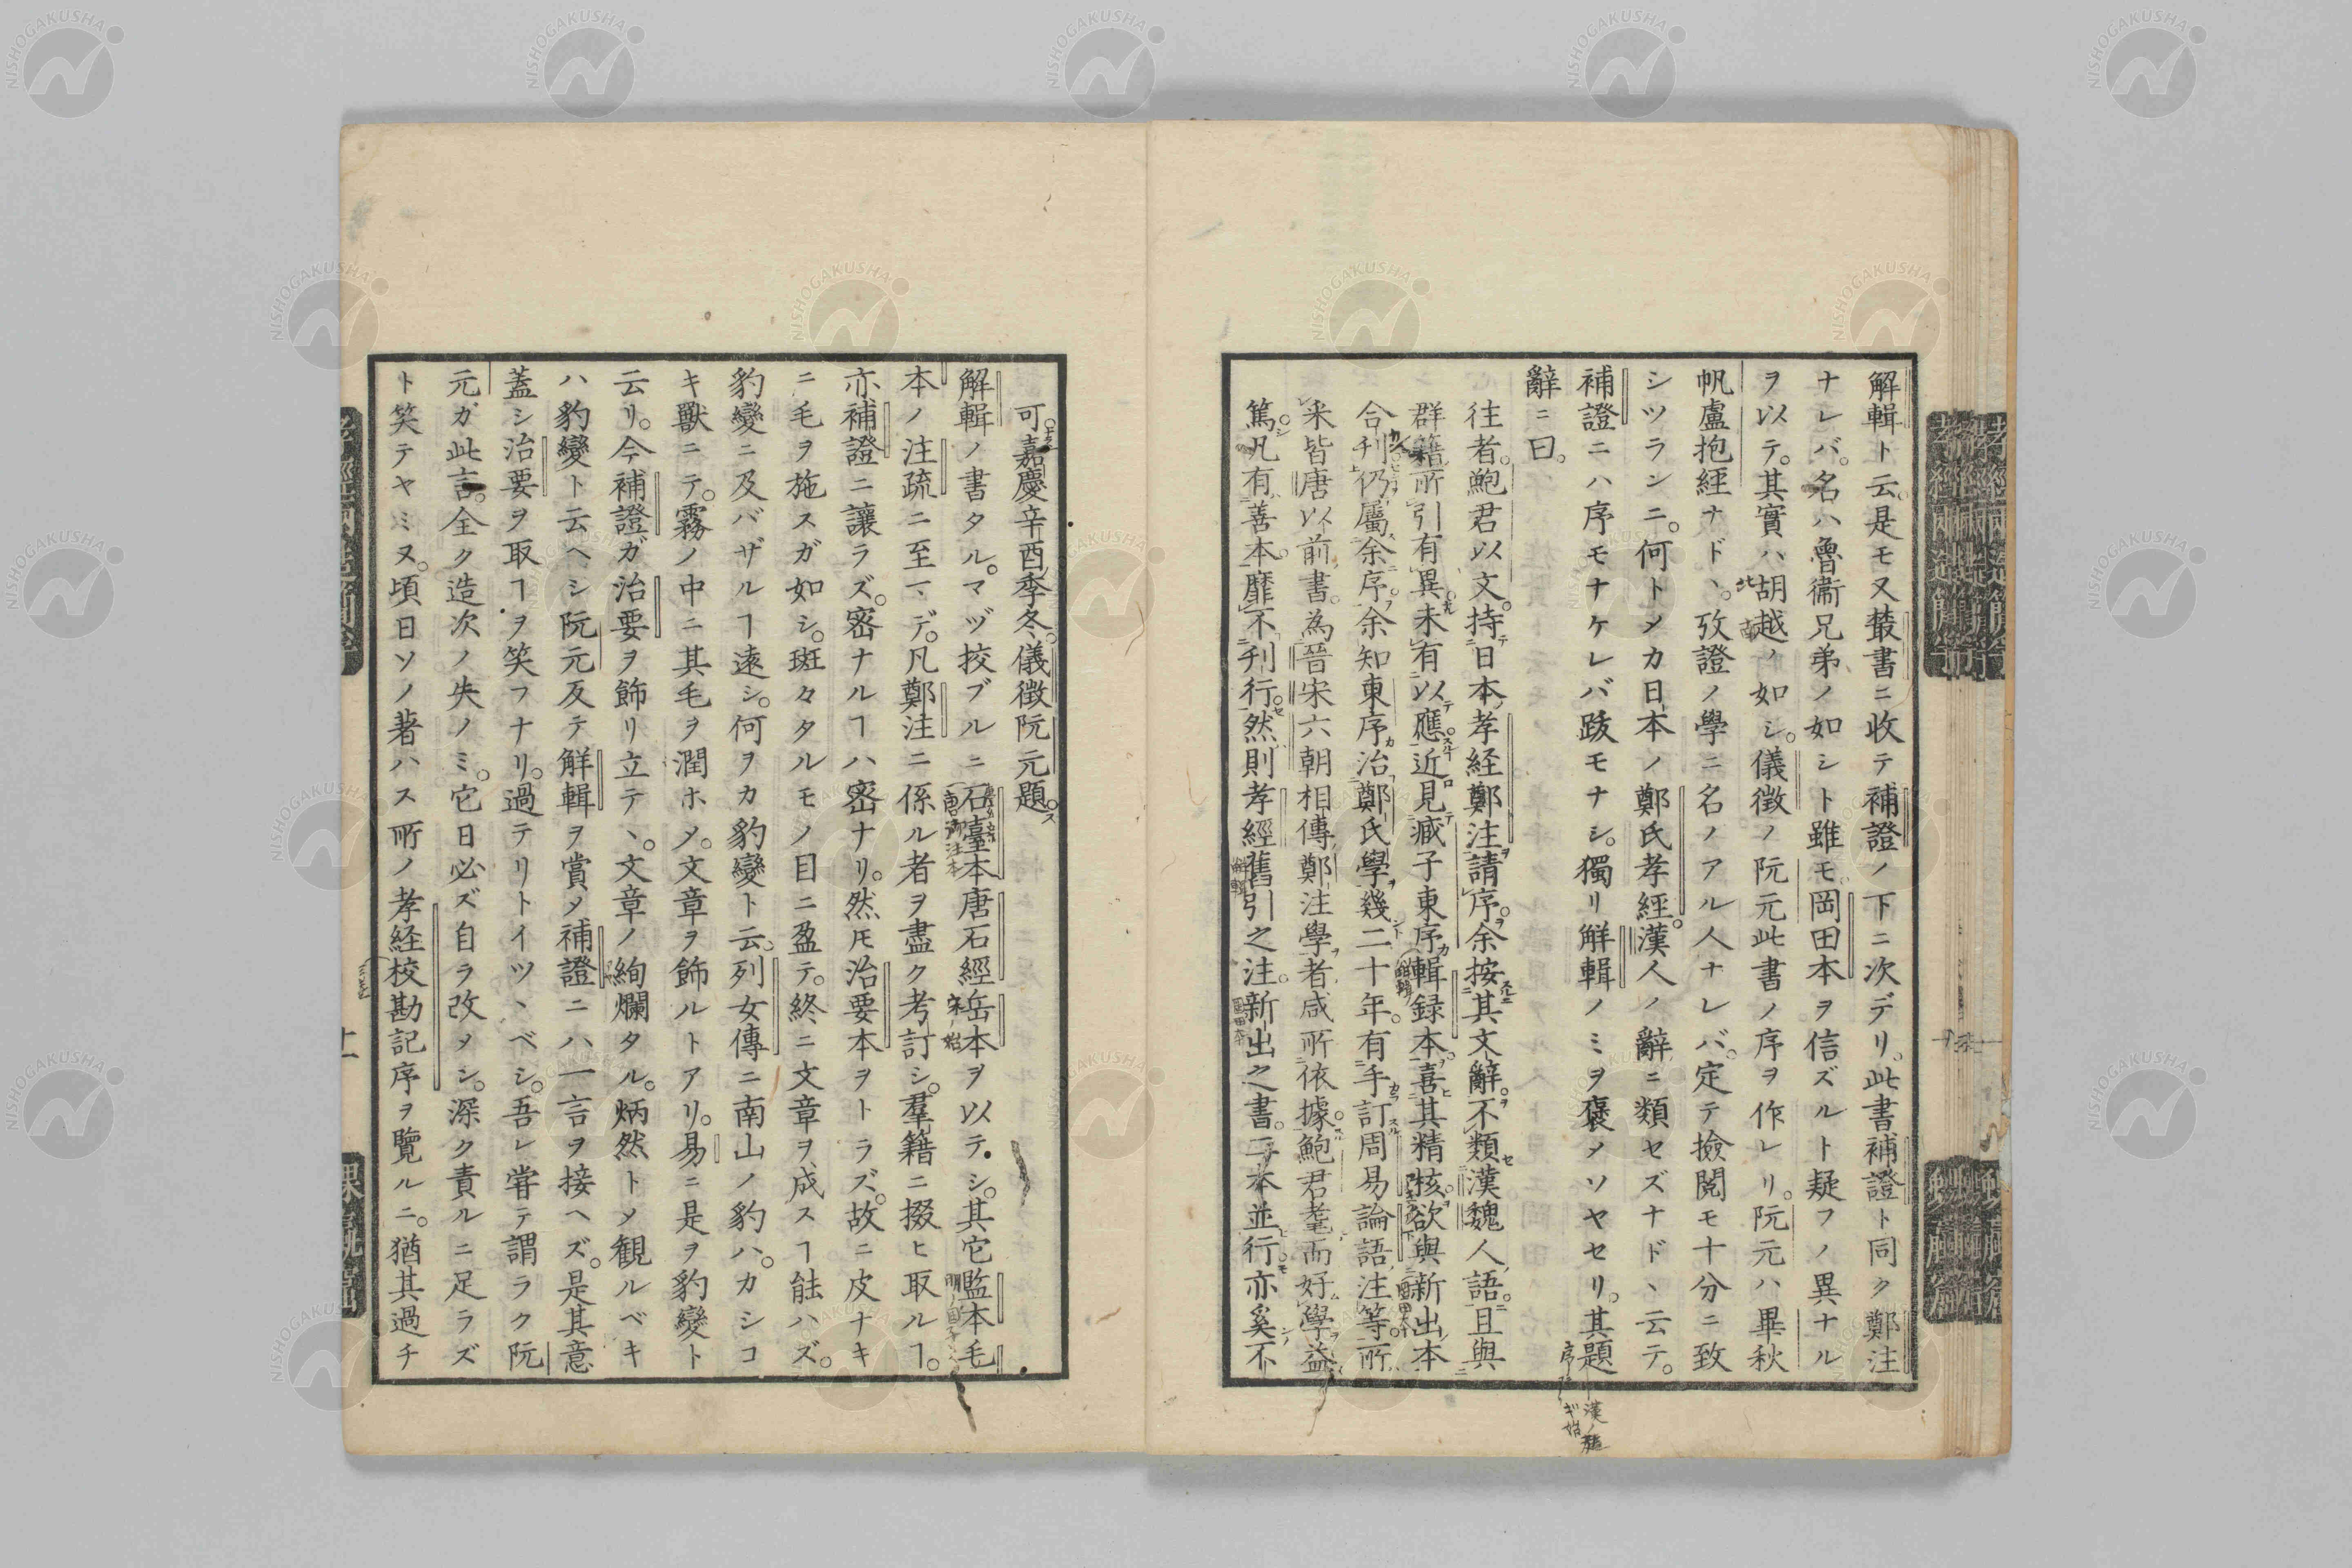 解輯ト云。是モ又叢書ニ收テ補證ノ下ニ次デリ。此書補證ト同ク鄭注
ナレバ。名ハ魯衞兄弟ノ如シト雖モ岡田本ヲ信ズルト疑フノ異ナル
ヲ以テ。其實ハ胡越ノ如シ。儀徴ノ阮元此書ノ序ヲ作レリ。阮元ハ畢秋
帆盧抱經ナド丶。攷證ノ學ニ名ノアル人ナレバ。定テ撿閲モ十分ニ致
シツラン二。何トメカ日本ノ鄭氏孝經。漢人ノ辭ニ類セズナド丶云テ。
補證ニハ序モナケレバ跋モナシ。獨リ解輯ノミヲ褒メソヤセリ。其題
辭ニ曰。
往者。鮑君以文。持日本孝経鄭注請序。余按其文辭。不類漢魏人語。且與
群籍所引有異。未有以應。近見臧子東序輯録本。喜其精核。欲與新出本
合刋。仍屬余序。余知東序治鄭氏學。幾二十年。有手訂周易論語注等。所
釆皆唐以前書。為晉宋六朝相傳鄭注學者咸所依據。鮑君耄而好學。益
篤。凡有善本。靡不刋行。然則孝經舊引之注。新出之書。二本並行。亦奚不
可。嘉慶辛酉季冬。儀徴阮元題。
解輯ノ書タル。マヅ挍ブルニ石臺本唐石經岳本ヲ以テシ。其它監本毛
本ノ注疏ニ至マデ。凡鄭注ニ係ル者ヲ盡ク考訂シ。羣籍ニ掇ヒ取ルヿ。
亦補證ニ讓ラズ。密ナルヿハ密ナリ。然𪜈治要本ヲトラズ。故ニ皮ナキ
ニ毛ヲ施スガ如シ。斑々タルモノ目ニ盈テ。終ニ文章ヲ成スヿ能ハズ。
豹變ニ及バザルヿ遠シ。何ヲカ豹變ト云。列女傳ニ南山ノ豹ハ。カシコ
キ獸ニテ。霧ノ中ニ其毛ヲ潤ホメ。文章ヲ飾ルトアリ。易ニ是ヲ豹變ト
云リ。今補證ガ治要ヲ飾リ立テ丶。文章ノ絢爛タル。炳然トメ観ルベキ
ハ豹變ト云ヘシ阮元反テ解輯ヲ賞メ補證ニハ一言ヲ接ヘズ。是其意
蓋シ治要ヲ取ヿヲ笑フナリ。過テリトイツ丶ベシ。吾レ甞テ謂ラク阮
元ガ此言。全ク造次ノ失ノミ。它日必ズ自ラ改メシ。深ク責ルニ足ラズ
ト笑テヤミヌ。頃日ソノ著ハス所ノ孝経校勘記序ヲ覽ルニ。猶其過チ
十一
NISHOGAKUSHA